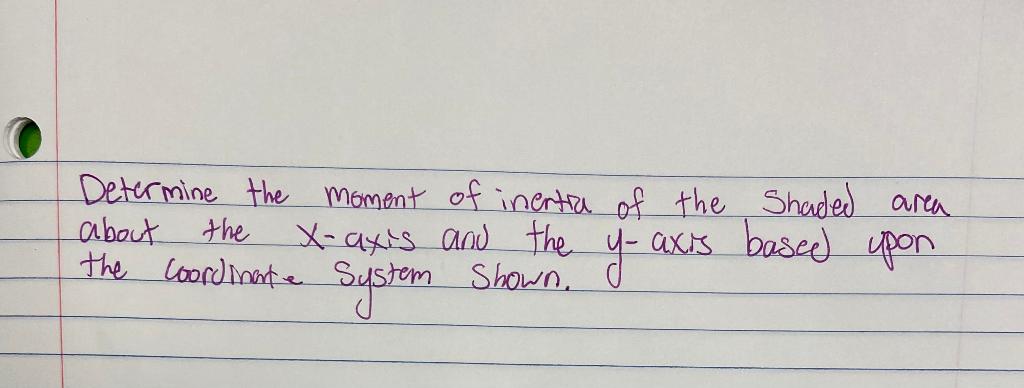 Determine the moment of inertia of the Shaded area
about the x-axis and the y-axis based upon
the Coordinate System Shown.